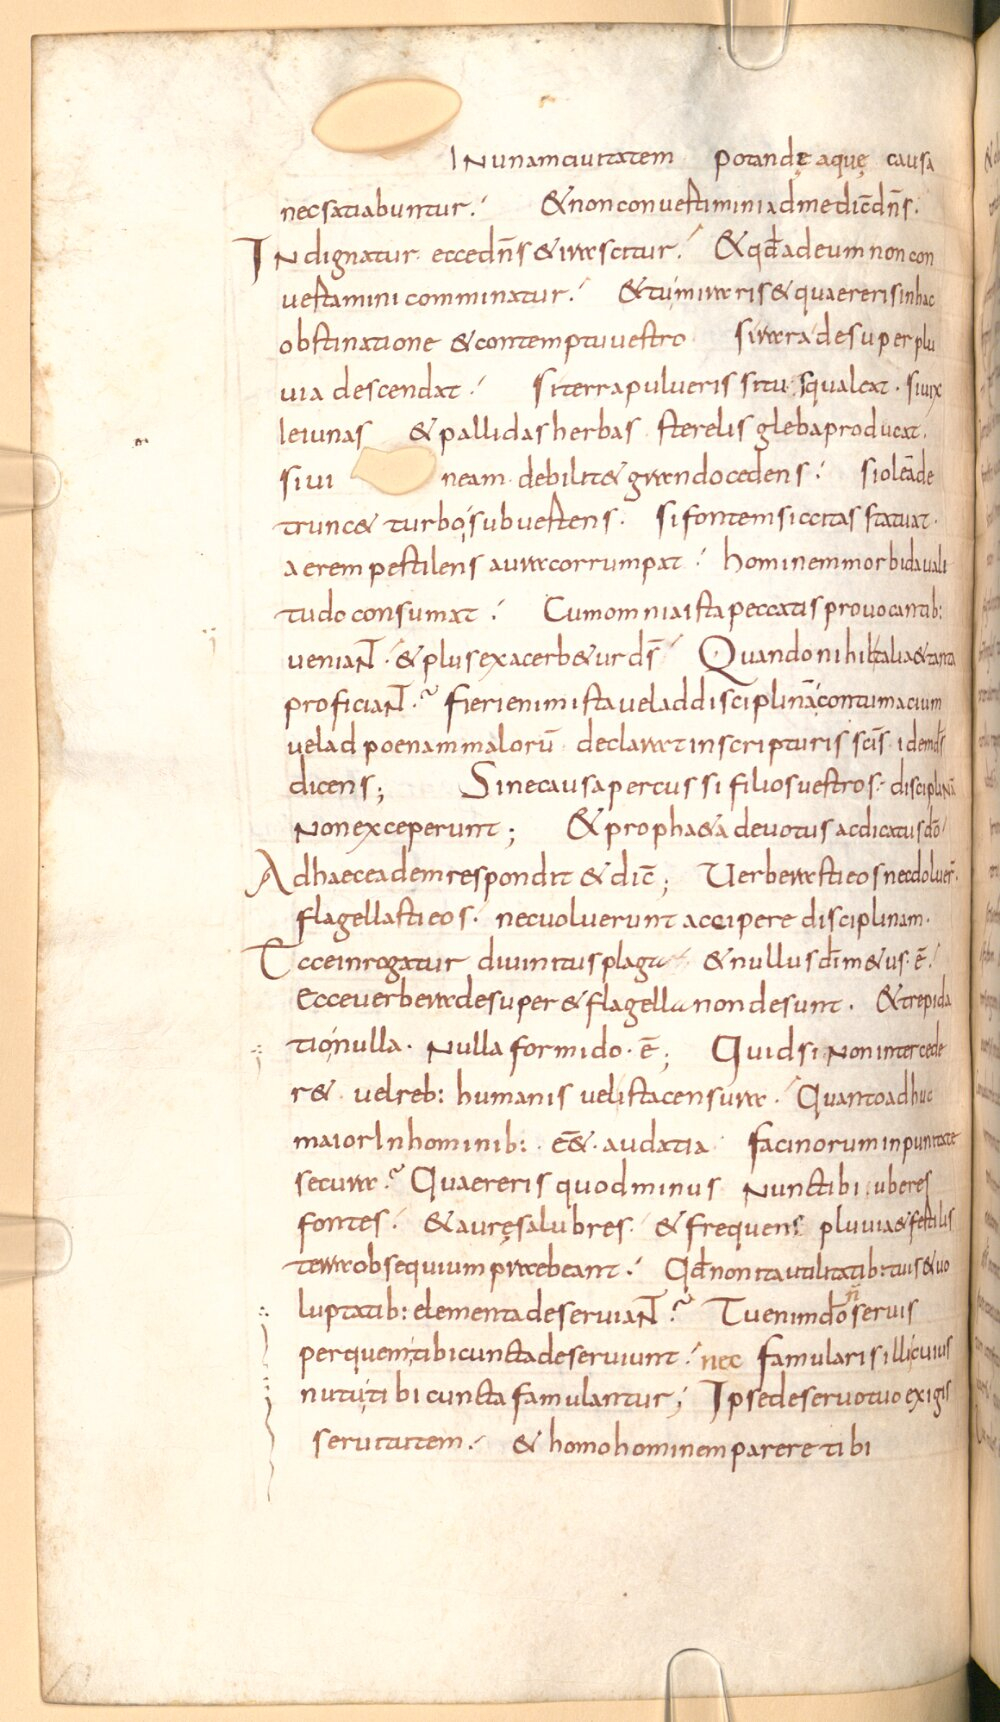 In unam ciuitatem potandę aquę causa
nec satiabuntur. & non conuestimini ad me dic̄ dn̄s.
Indignatur ecce dn̄s & irascitur. & qđ ad eum non con
uestamini comminatur. & tu miraris & quaereris in hac
obstinatione & contemptu uestro si rara desuper plu
uia descendat. si terra pulueris situ squaleat. si uix
ieiunas & pallidas herbas sterelis gleba producat.
si ui neam debilit& grando cedens. si oleā de
trunc& turbo subuestens. si fontem siccitas statuat.
aerem pestilens aura corrumpat. hominem morbida uali
tudo consumat. Cum omnia ista peccatis prouocantib:
ueniaNT. & plus exacerb&ur ds̄ Quando nihil talia & tanta
proficiaNT. Fieri enim ista uel ad disciplinā contumacium
uel ad poenam malorū declarat in scripturis scīs idem ds̄
dicens; Sine causa percussi filios uestros. disciplinā
non exceperunt; & proph&a deuotus ac dicatus dō
Ad haec eadem respondit & dic̄; Uerberasti eos nec doluer̄.
flagellasti eos. nec uoluerunt accipere disciplinam.
Ecce inrogatur diuinitus plaga & nullus dī m&us. ē.
Ecce uerbera desuper & flagella non desunt. & trepida
tio nulla. nulla formido. ē; Quid si non intercede
r& uel reb: humanis uel ista censura. Quanto adhuc
maior In hominib: eē&. audatia facinorum inpunitate
secura. Quaereris quod minus nunc tibi uberes
fontes. & aurę salubres. & frequens pluuia & fertilis
terra obsequium praebeant. Qđ non ita utilitatib: tuis & uo
luptatib: elementa deseruiaNT. Tu enim dō n̄ seruis
per quem tibi cuncta deseruiunt. nec famularis illi cuius
nutu tibi cuncta famulantur; Ipse de seruo tuo exigis
seruitutem. & homo hominem parere tibi